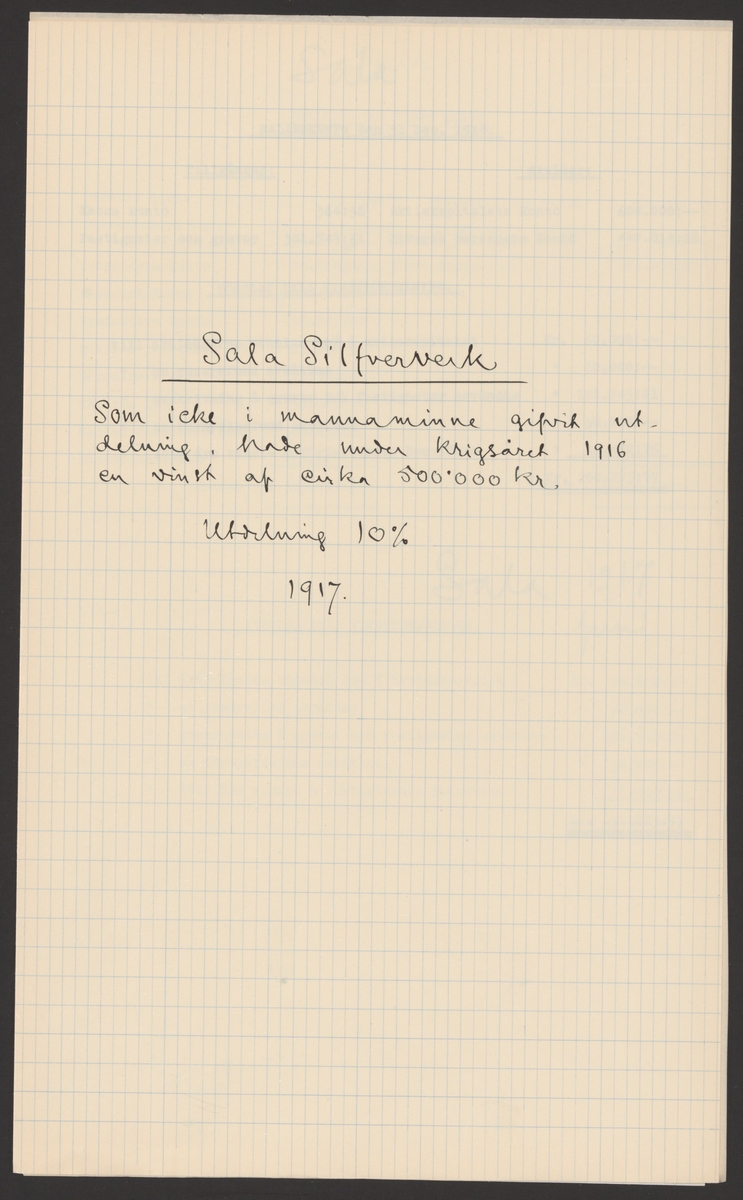 Sala Silfververk
Som icke i mannaminne gifvit ut-
delning, hade under krigsåret 1916
en vinst af cirka 500'000 kr.
Utdelning 10%
1917.